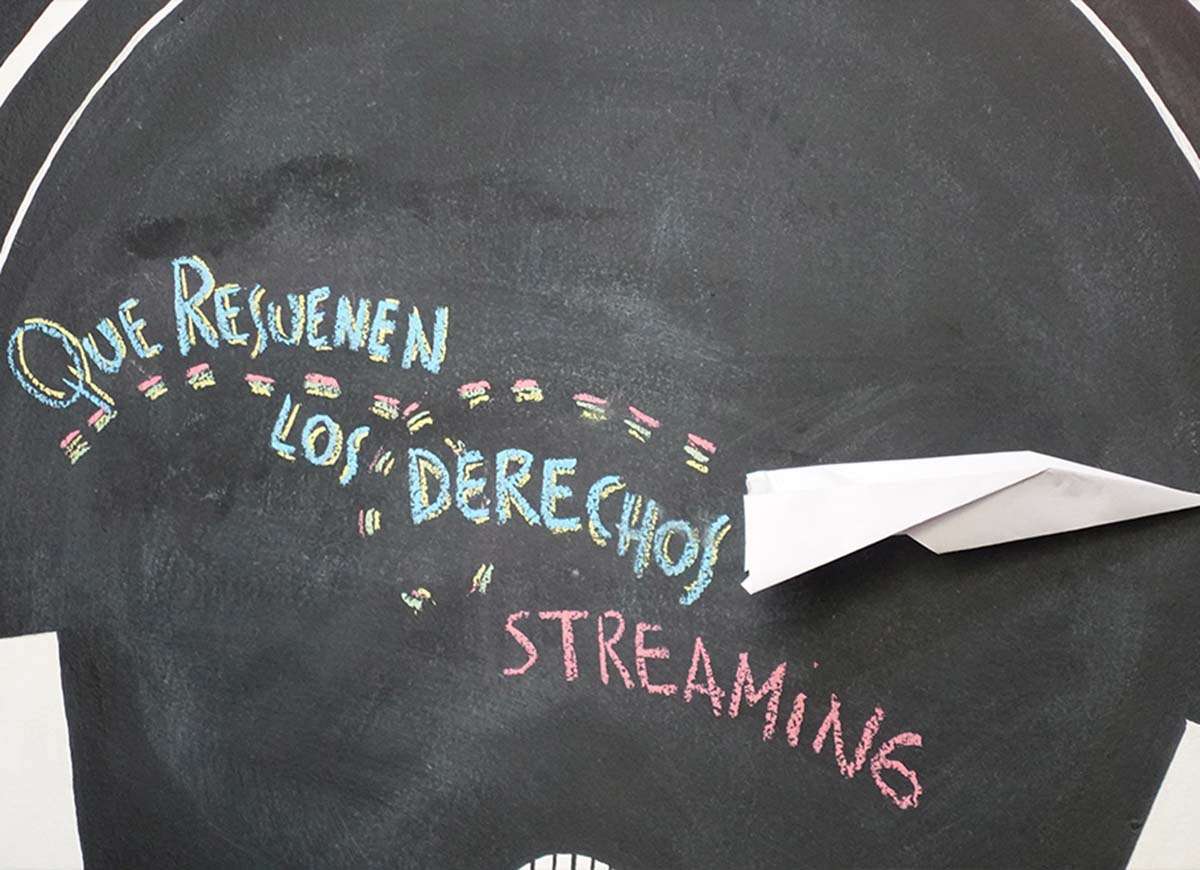 QUE RESUENEN
LOS DERECHOS
STREAMiNG